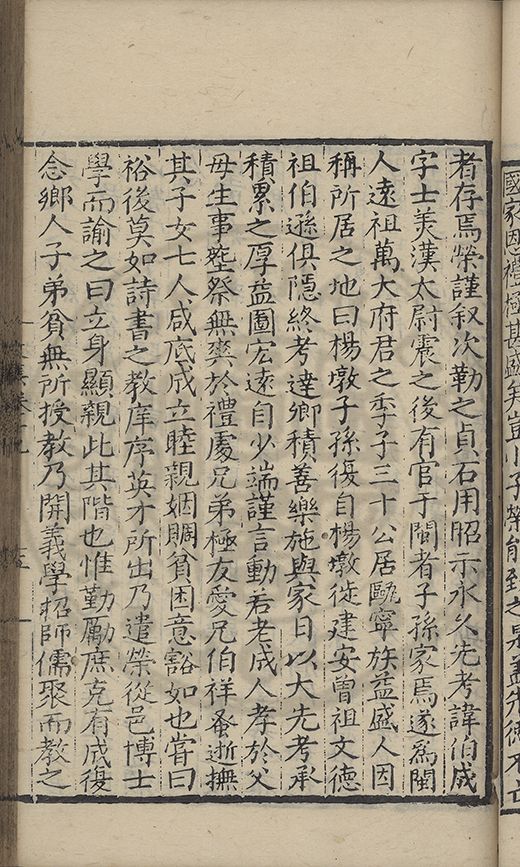 國家恩禮極甚盛矣豈小子榮能致之泉蓋先德不亡
者存焉榮謹叙次勒之貞石用昭示永久先考諱伯成
字士美漢太尉震之後有官于閩者子孫家焉遂爲閩
人遠祖萬大府君之季子三十公居甌寧族益盛人因
稱所居之地曰楊墩子孫復自楊墩徙建安曾祖文德
祖伯遜俱隱終考達卿積善樂施與家日以大先考承
積累之厚益圖宏遠自少端謹言動若老成人孝於父
母生事塟祭無爽於禮處兄弟極友愛兄伯祥蚤逝撫
其子女七人咸底成立睦親姻賙貧困意豁如也甞曰
裕後莫如詩書之教庠序英才所出乃遣榮從邑博士
學而諭之曰立身顯親此其階也惟勤勵庶克有成復
念鄉人子弟貧無所授教乃開義學招師儒聚而教之